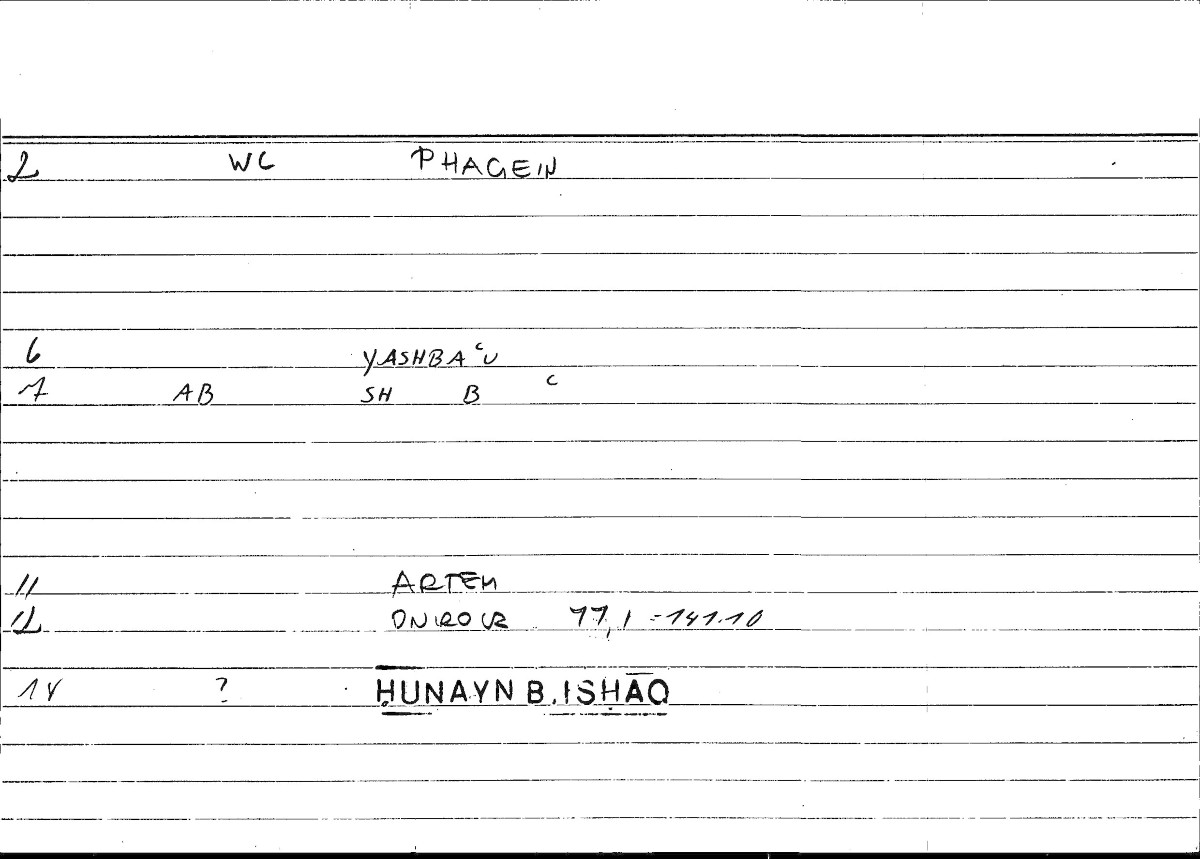 2 WC PHAGEIN
6 YASHBAᶜU
7 AB SH B ᶜ
11 ARTEM
12 ONIROCR 77,1 - 141.10
14 ? ḤUNAYN B. ISḤĀQ